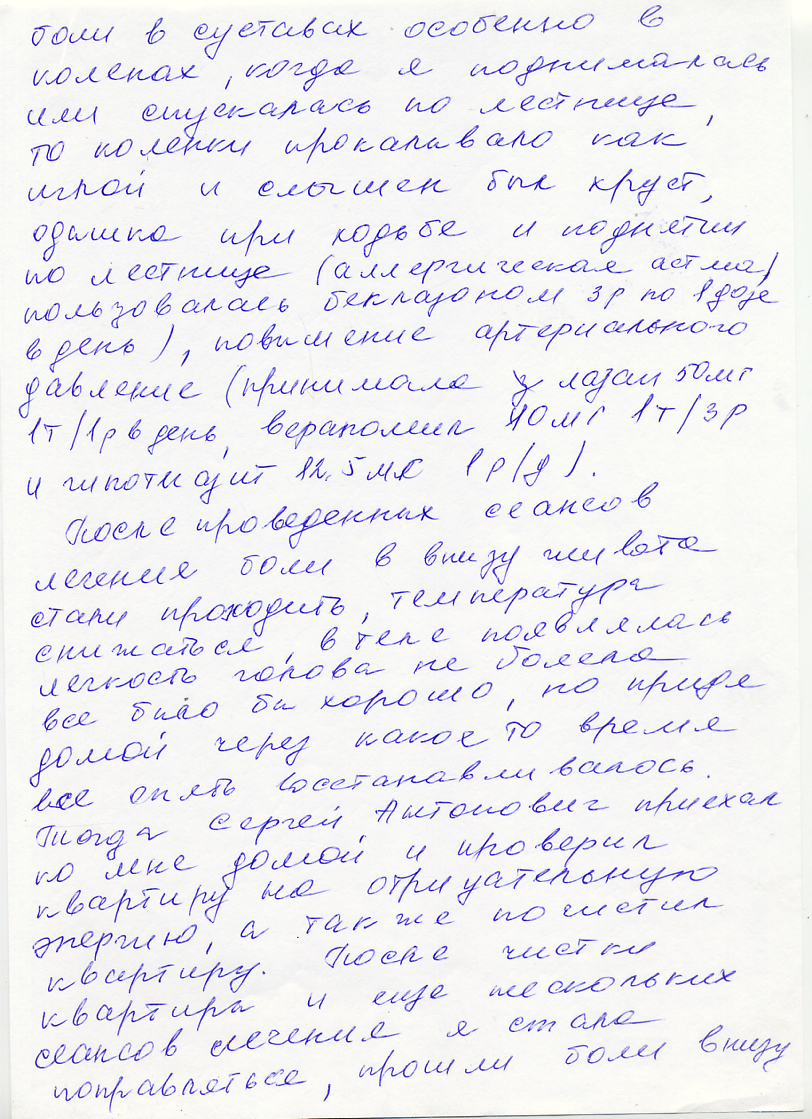 боли в суставах особенно в
коленах, когда я поднималась
или спускалась по лестнице,
то коленки прокаливало как
иглой и слышен был хруст,
одышка при ходьбе и поднятии
по лестнице (аллергическая астма,
пользовалась беклазоном 3р по 1 дозе
в день), повышение артериального
давление (принимала лозап 50мг
1т/1р в день, верапомил 40мг 1т/3р
и гипотиазит 12.5мг 1р/д).
После проведенных сеансов
лечения боли в внизу живота
стали проходить, температура
снижаться, в теле появлялась
легкость голова не болела
все было бы хорошо, но приде
домой через какое то время
все опять восстанавливалось.
Тогда Сергей Антонович приехал
ко мне домой и проверил
квартиру на отрицательную
энергию, а также почистил
квартиру. После чистки
квартиры и еще нескольких
сеансов лечения я стала
поправляться, прошли боли внизу